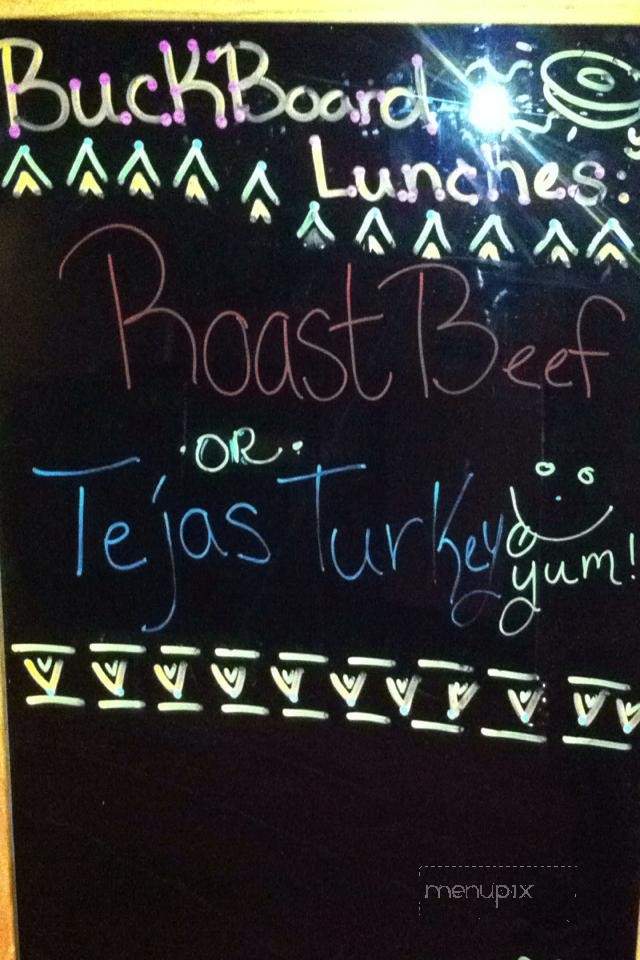 BuckBoard
Lunches:
Roast Beef
·OR·
Tejas Turkey
yum!
menupix